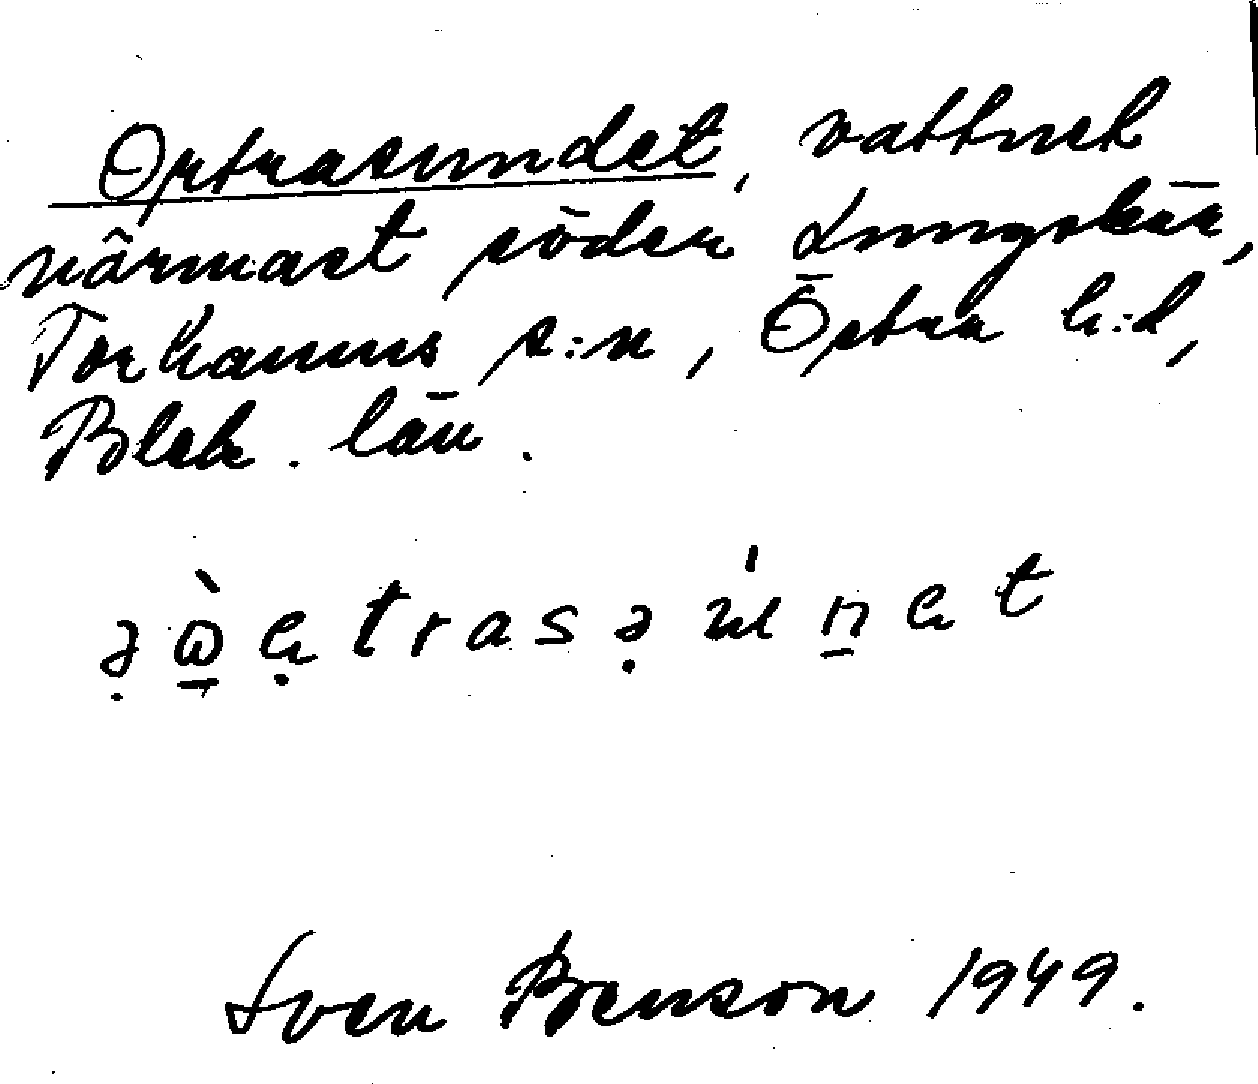 Ortrasundet, vattnet
närmast söder Lungskär,
Torhamns s:n, Östra h:d,
Blek. län.
ə̣ὼ̱ẹtrasə̣u̍n̠et
Sven Benson 1949.